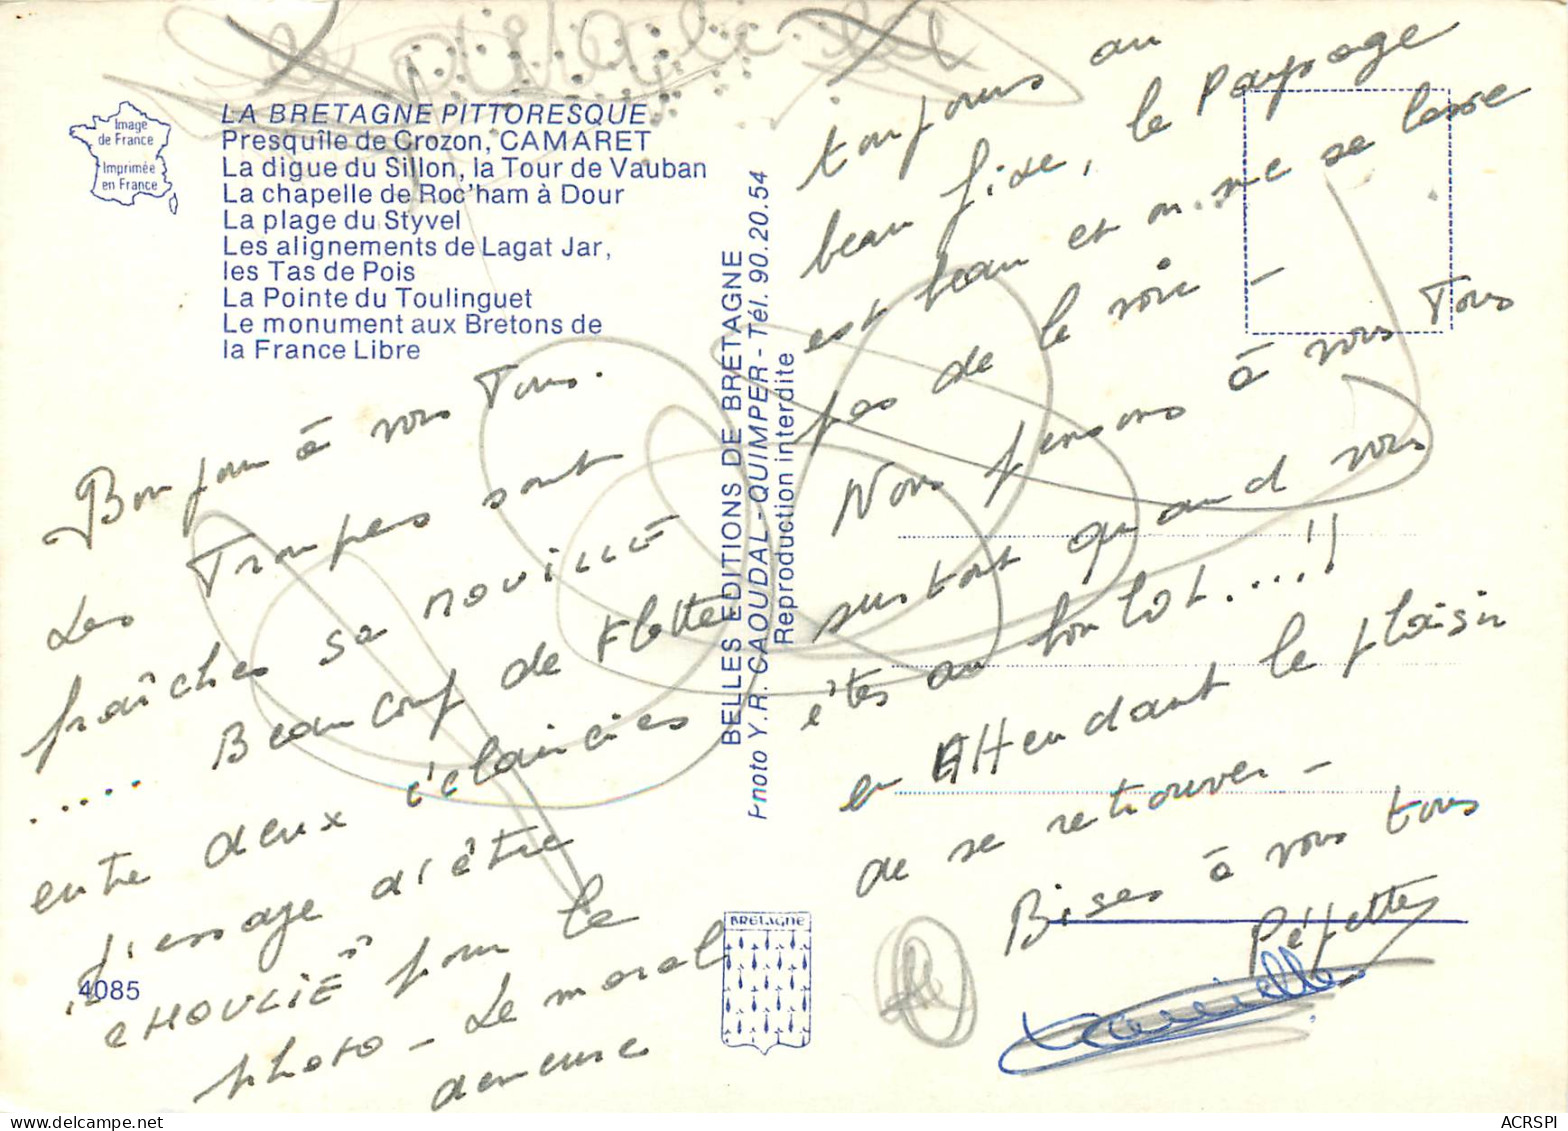 Image
de France
Imprimée
en France
LA BRETAGNE PITTORESQUE
Presquîle de Crozon, CAMARET
La digue du Sillon, la Tour de Vauban
La chapelle de Roc'ham à Dour
La plage du Styvel
Les alignements de Lagat Jar,
les Tas de Pois
La Pointe du Toulinguet
Le monument aux Bretons de
la France Libre
Bonjour à vous Tous.
Les Troupes sont
fraîches sa nouille
.... Beaucoup de Flotte
entre deux éclaircies
j'essaye d'être
pour le
photo - Le moral
demeure
4085
BELLES EDITIONS DE BRETAGNE
Photo Y.R. CAOUDAL - QUIMPER - Tél. 90.20.54
Reproduction interdite
BRETAGNE
toujours au
beau fixe, le paysage
est beau et on ne se lasse
pas de le voir -
Nous pensons à vous Tous
surtout quand vous
êtes au boulot....!!
en Attendant le plaisir
de se retrouver -
Bises à vous tous
Pépettes
ACRSPI